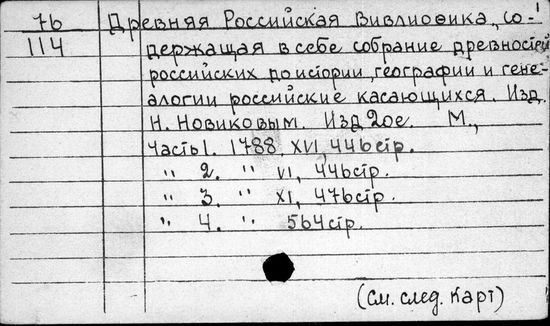 76 Древняя Российская Вивлиоѳика, со-
114 держащая в себе собрание древностей
российских до истории, географии и гене-
алогии российские касающихся. Изд.
Н. Новиковым. Изд 2ое. М.,
Часть 1. 1788. XVI, 446 стр.
" 2. " VI, 446 стр.
" 3. " XI, 476 стр.
" 4. " 564 стр.
(см. след. карт)